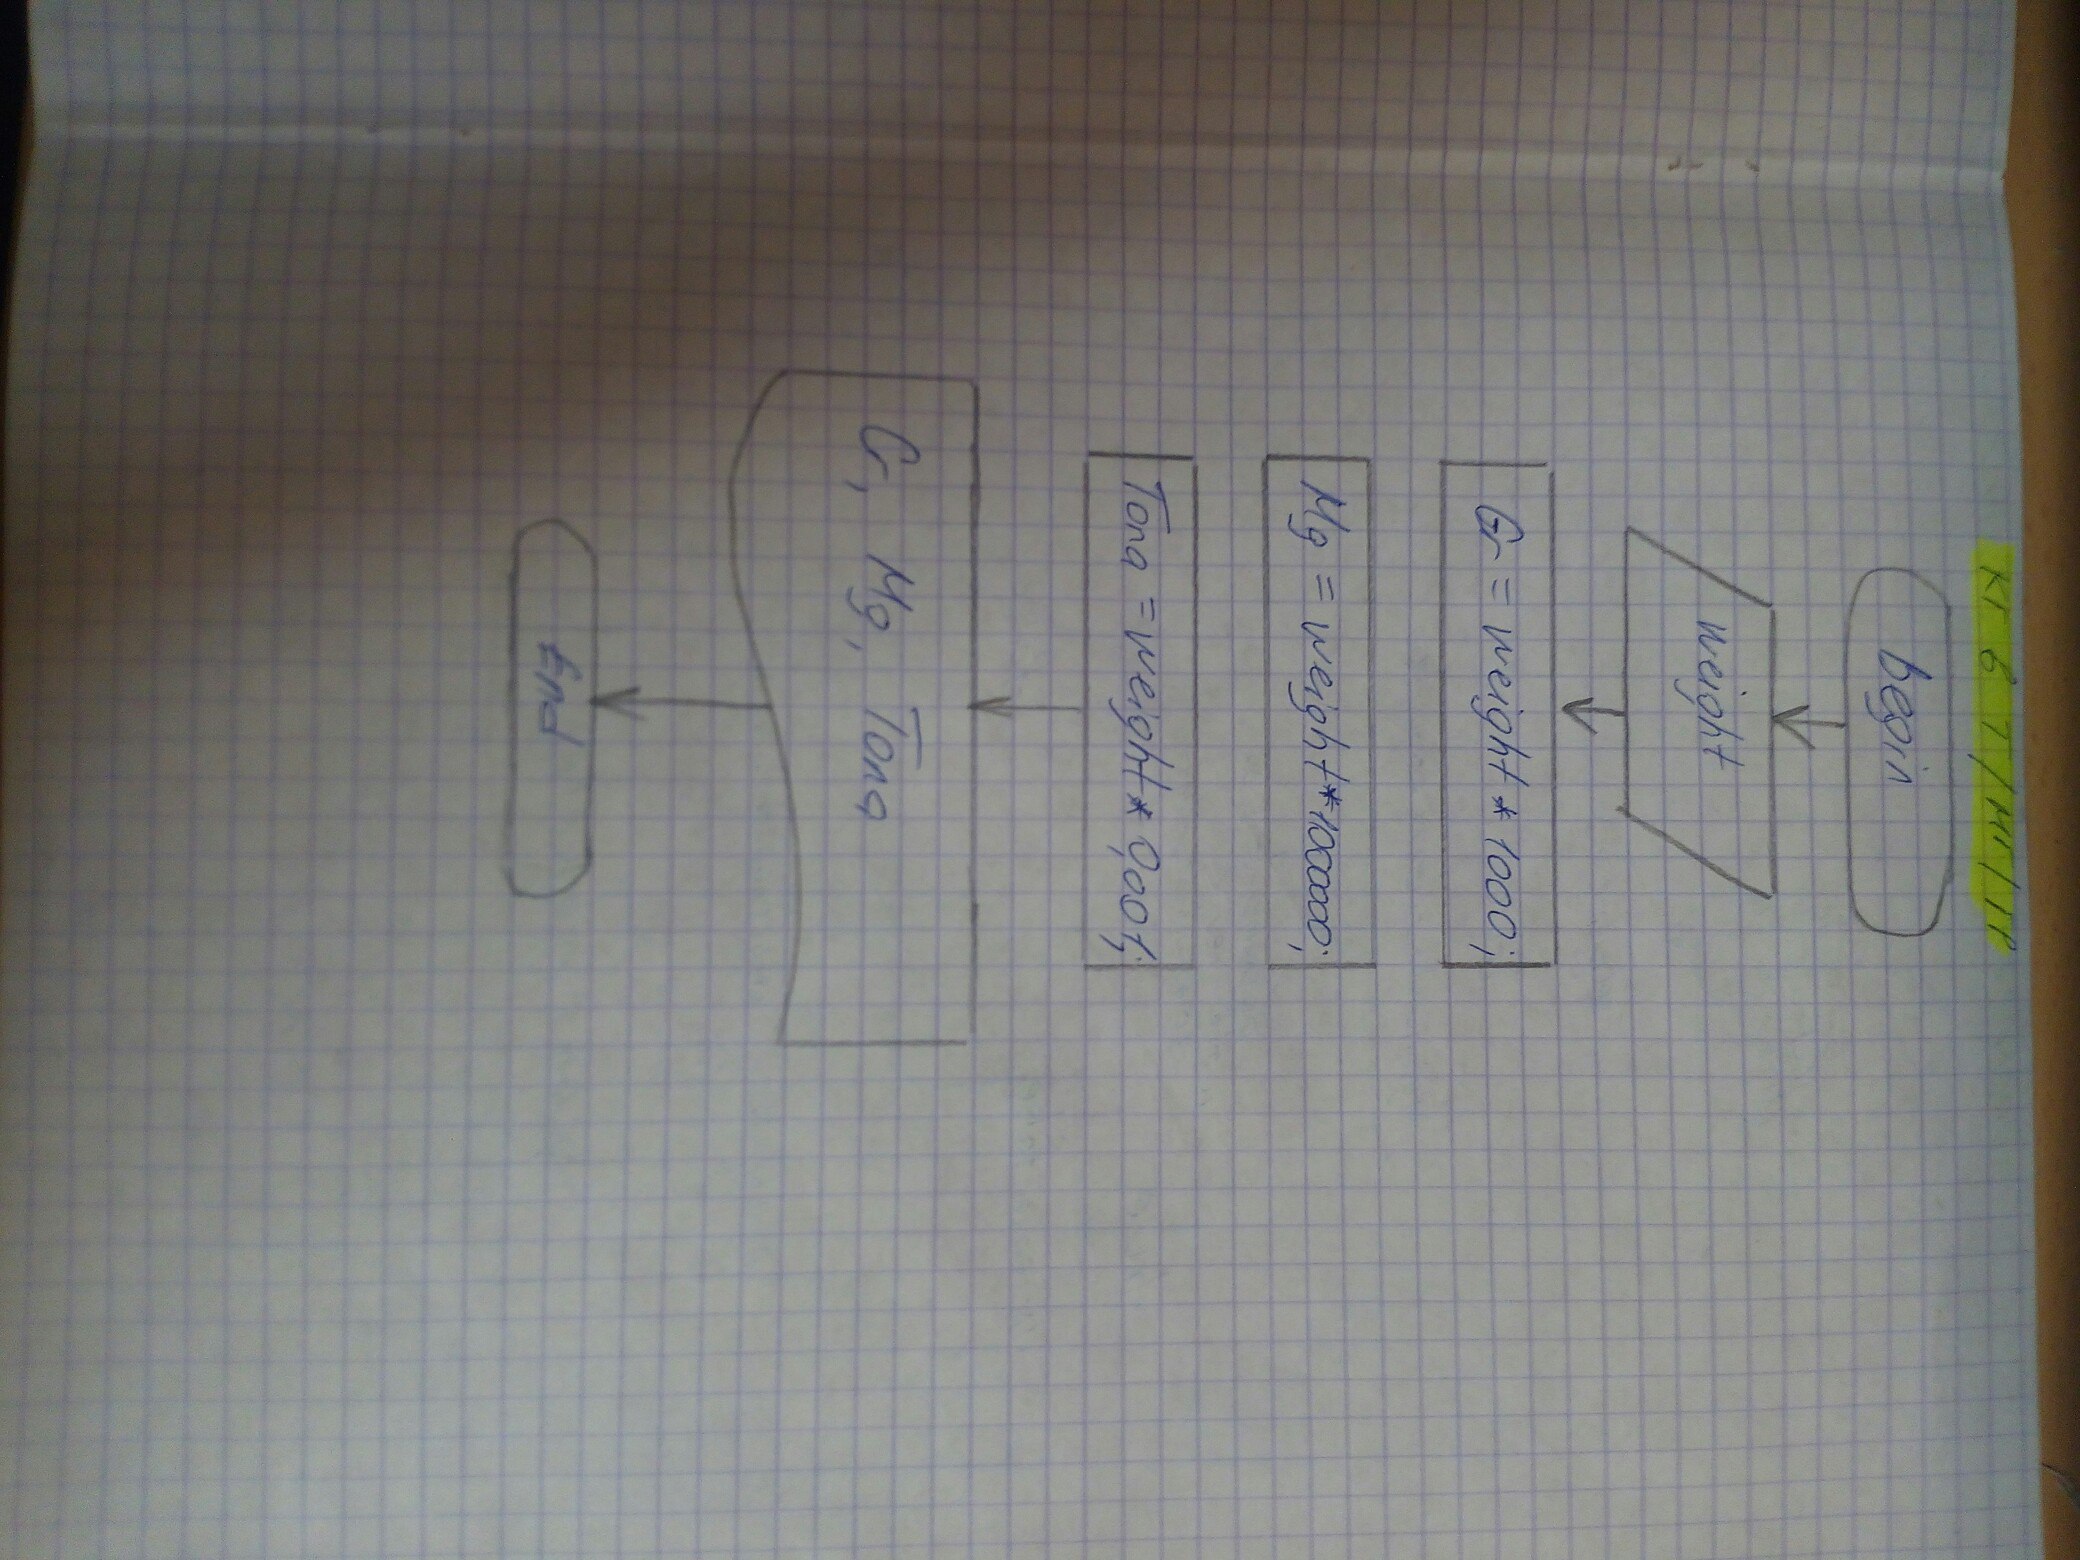 КГ в Т/МГ/ГР
begin
weight
Gr = weight * 1000;
Mg = weight*1000000;
Tona = weight * 0,001;
Gr, Mg, Tona
End